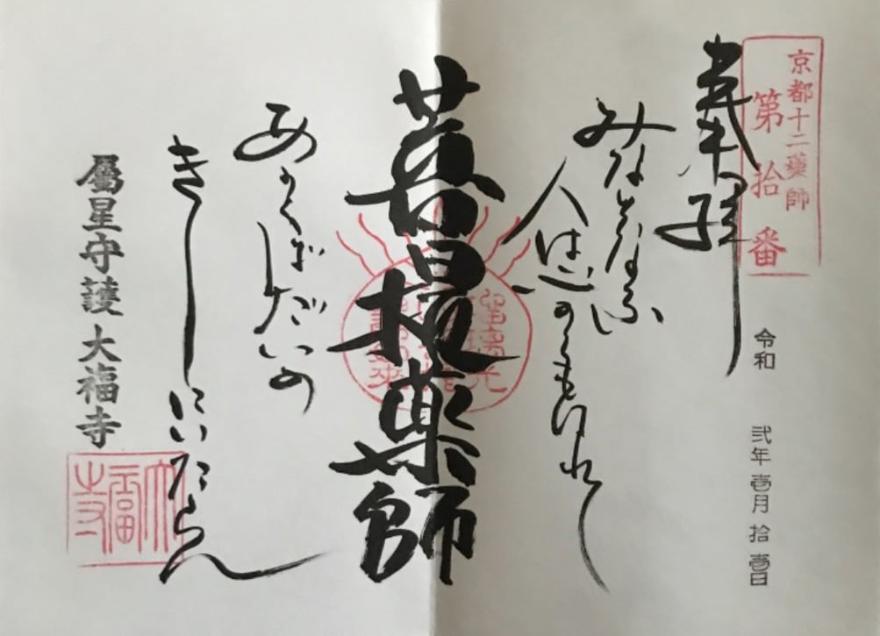 京都十二藥師
第拾番
奉拝
令和 弍年 壹月 拾壹日
みなとなふ
人は のくもはれて
菩提薬師
あのくぼだいの
きしにいたらん
屬星守護 大福寺
大福寺